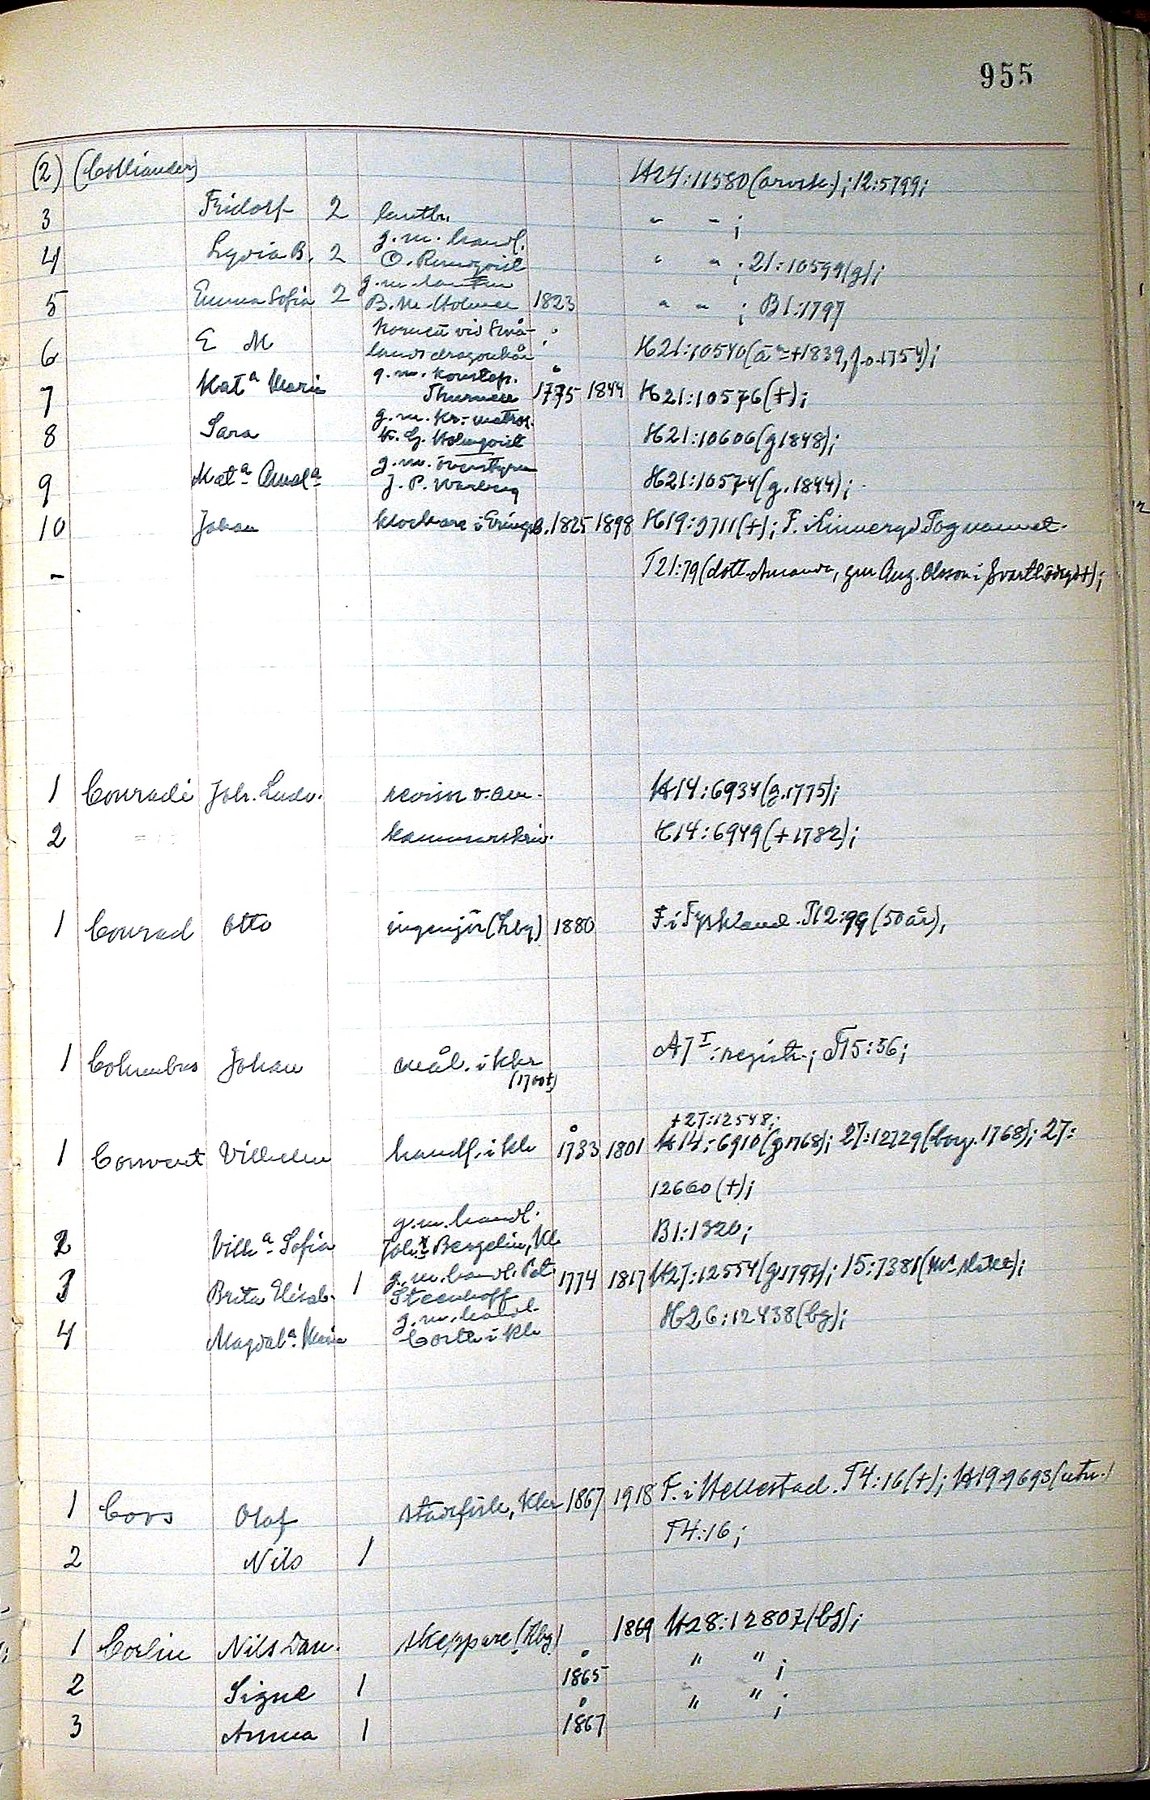 955
(2) (Colliander) H24:11580(arvsk.); 12:5799;
3 Fridolf 2 lantbr. " " ;
4 Lydia B. 2 g.m. handl. O. Runqvist " " ; 21:10599(g);
5 Emma Sofia 2 g.m. B. M. 1823 " " ; B1:1797
6 E M kornett vid Små-
landsdragonkår H21:10540( +1839, 1754);
7 Kat a Maria g.m. konstap. Thurnell 1775 1844 H21:10576(†);
8 Sara g.m. kr.-matros. K. G. Holmqvist H21:10606(g1848);
9 Mat a Amal a g.m. överstyrm J. P. Warberg H21:10574(g.1844);
10 Johan klockare i 1825 1898 H19:9711(†); F. i Tog namnet.
- T21:79(dott. Amanda, gm Aug. Olsson i †);
1 Conradi Joh. Ludv. revisor v. am. H14:6934(g.1775);
2 kammarskriv. H14:6949(+1782);
1 Conrad Otto ingenjör (Kbg) 1880 F. i Tyskland. T12:99 (50 år),
1 Columbus Johan mål. i Klr (1700t) A7 I: registr.; T15:56;
+27:12548;
1 Convert Vilhelm handl. i Klr 1733 1801 H14:6910(g1768); 27:12729(borg. 1768); 27:
12660 (†);
2 Vilh a Sofia g.m. handl. Joh. Bergelin, Klr B1:1320;
3 Brita Elisab. 1 g.m. handl. Pet. Steenhoff 1774 1817 H27:12554(g1797); 15:7381( );
4 Magdal a Maria g.m. handl. Corth i Klr H26:12438(bg);
1 Coos Olof stadsfisk., Klr 1867 1918 F. i Hellestad. T4:16(†); H19:9693(utn.)
2 Nils 1 T4:16;
1 Corlin Nils Dan. skeppare (Kbg) 1869 H28:12807(bg);
2 Signe 1 1865 " " ;
3 Anna 1 1867 " " ;